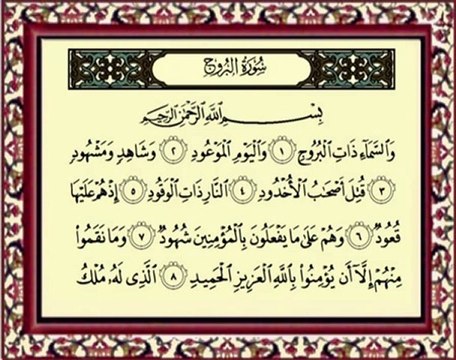 سُورَةُ البُرُوجِ
بِسْمِ اللَّهِ الرَّحْمَٰنِ الرَّحِيمِ
وَالسَّمَاءِ ذَاتِ الْبُرُوجِ ١ وَالْيَوْمِ الْمَوْعُودِ ٢ وَشَاهِدٍ وَمَشْهُودٍ
٣ قُتِلَ أَصْحَابُ الْأُخْدُودِ ٤ النَّارِ ذَاتِ الْوَقُودِ ٥ إِذْ هُمْ عَلَيْهَا
قُعُودٌ ٦ وَهُمْ عَلَىٰ مَا يَفْعَلُونَ بِالْمُؤْمِنِينَ شُهُودٌ ٧ وَمَا نَقَمُوا
مِنْهُمْ إِلَّا أَن يُؤْمِنُوا بِاللَّهِ الْعَزِيزِ الْحَمِيدِ ٨ الَّذِي لَهُ مُلْكُ